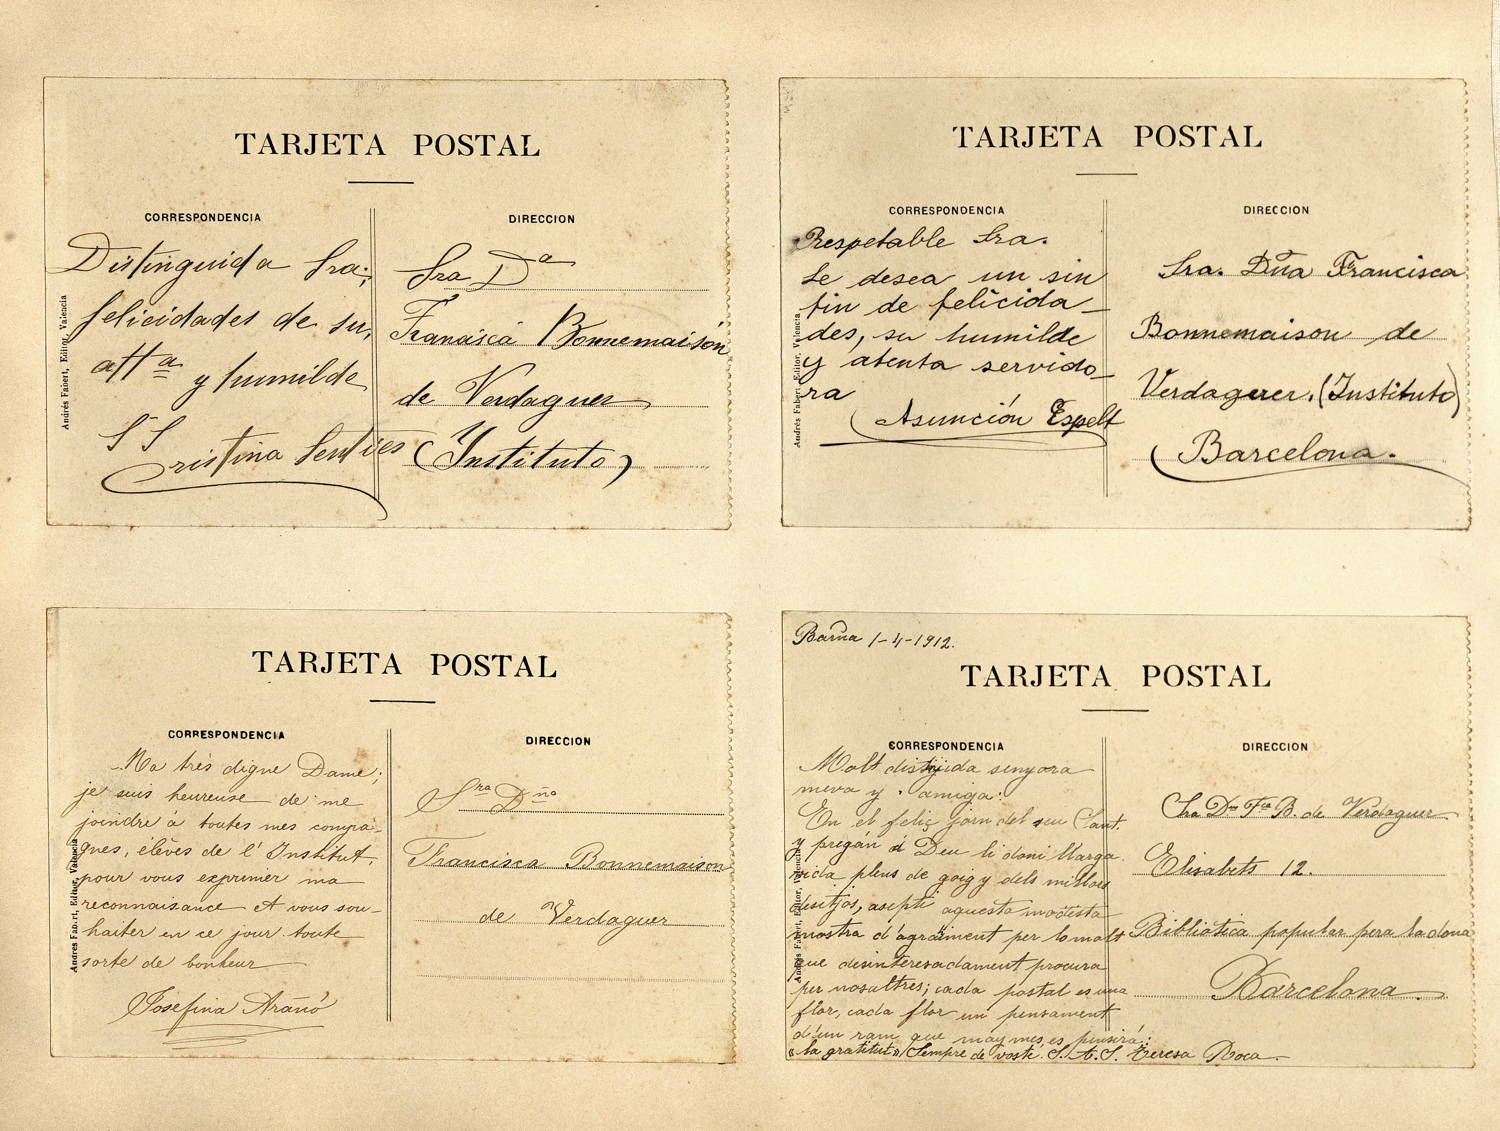 TARJETA POSTAL
CORRESPONDENCIA
Distinguida Sra:
felicidades de su,
attª y humilde
S S
Cristina Senties
DIRECCION
Sra Dª
Francisca Bonnemaisón
de Verdaguer
(Instituto)
Andrés Fabert, Editor, Valencia
TARJETA POSTAL
CORRESPONDENCIA
Respetable Sra.
Le desea un sin
fin de felicida-
des, su humilde
y atenta servido-
ra
Asunción Espelt
DIRECCION
Sra. Dña Francisca
Bonnemaison de
Verdaguer. (Instituto)
Barcelona.
Andrés Fabert, Editor, Valencia
TARJETA POSTAL
CORRESPONDENCIA
Ma très digne Dame;
je suis heureuse de me
joindre à toutes mes compa-
gnes, élèves de l' Institut,
pour vous exprimer ma
reconnaisance et vous sou-
haiter en ce jour toute
sorte de bonheur
Josefina Arañó
DIRECCION
Sra Dña
Francisca Bonnemaison
de Verdaguer
Andrés Fabert, Editor, Valencia
Barña 1-4-1912.
TARJETA POSTAL
CORRESPONDENCIA
Molt distijida senyora
meva y amiga:
En el feliç jorn del seu Sant.
y pregán á Deu li doni llarga
vida plens de goig y dels millors
desitjos, asepti aquesta modesta
mostra d'agraiment per lo molt
que desinteresadament procura
per nosaltres; cada postal es una
flor, cada flor un pensament
d'un ram que may mes es pensirá:
«la gratitut» Sempre de vosté. S. A. S. Teresa Roca.
DIRECCION
Sra Dna Fca B. de Verdaguer
Elisabets 12.
Biblioteca popular pera la dona
Barcelona.
Andrés Fabert, Editor, Valencia